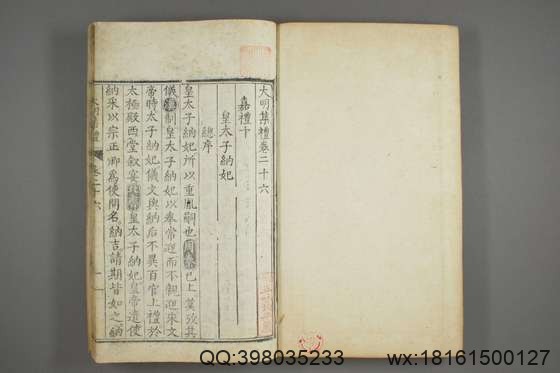 大明集禮卷二十六
嘉禮十
皇太子納妃
總序
皇太子納妃所以重胤嗣也周以上業攷其
儀漢制皇太子納妃以奉常迎而不親迎宋文
帝時太子納妃儀文與納后不異百官上禮於
太極殿西堂叙宴皇太子納妃皇帝遣使
納采以宗正卿為使問名納吉請期皆如之納
QQ:398035233
wx:18161500127